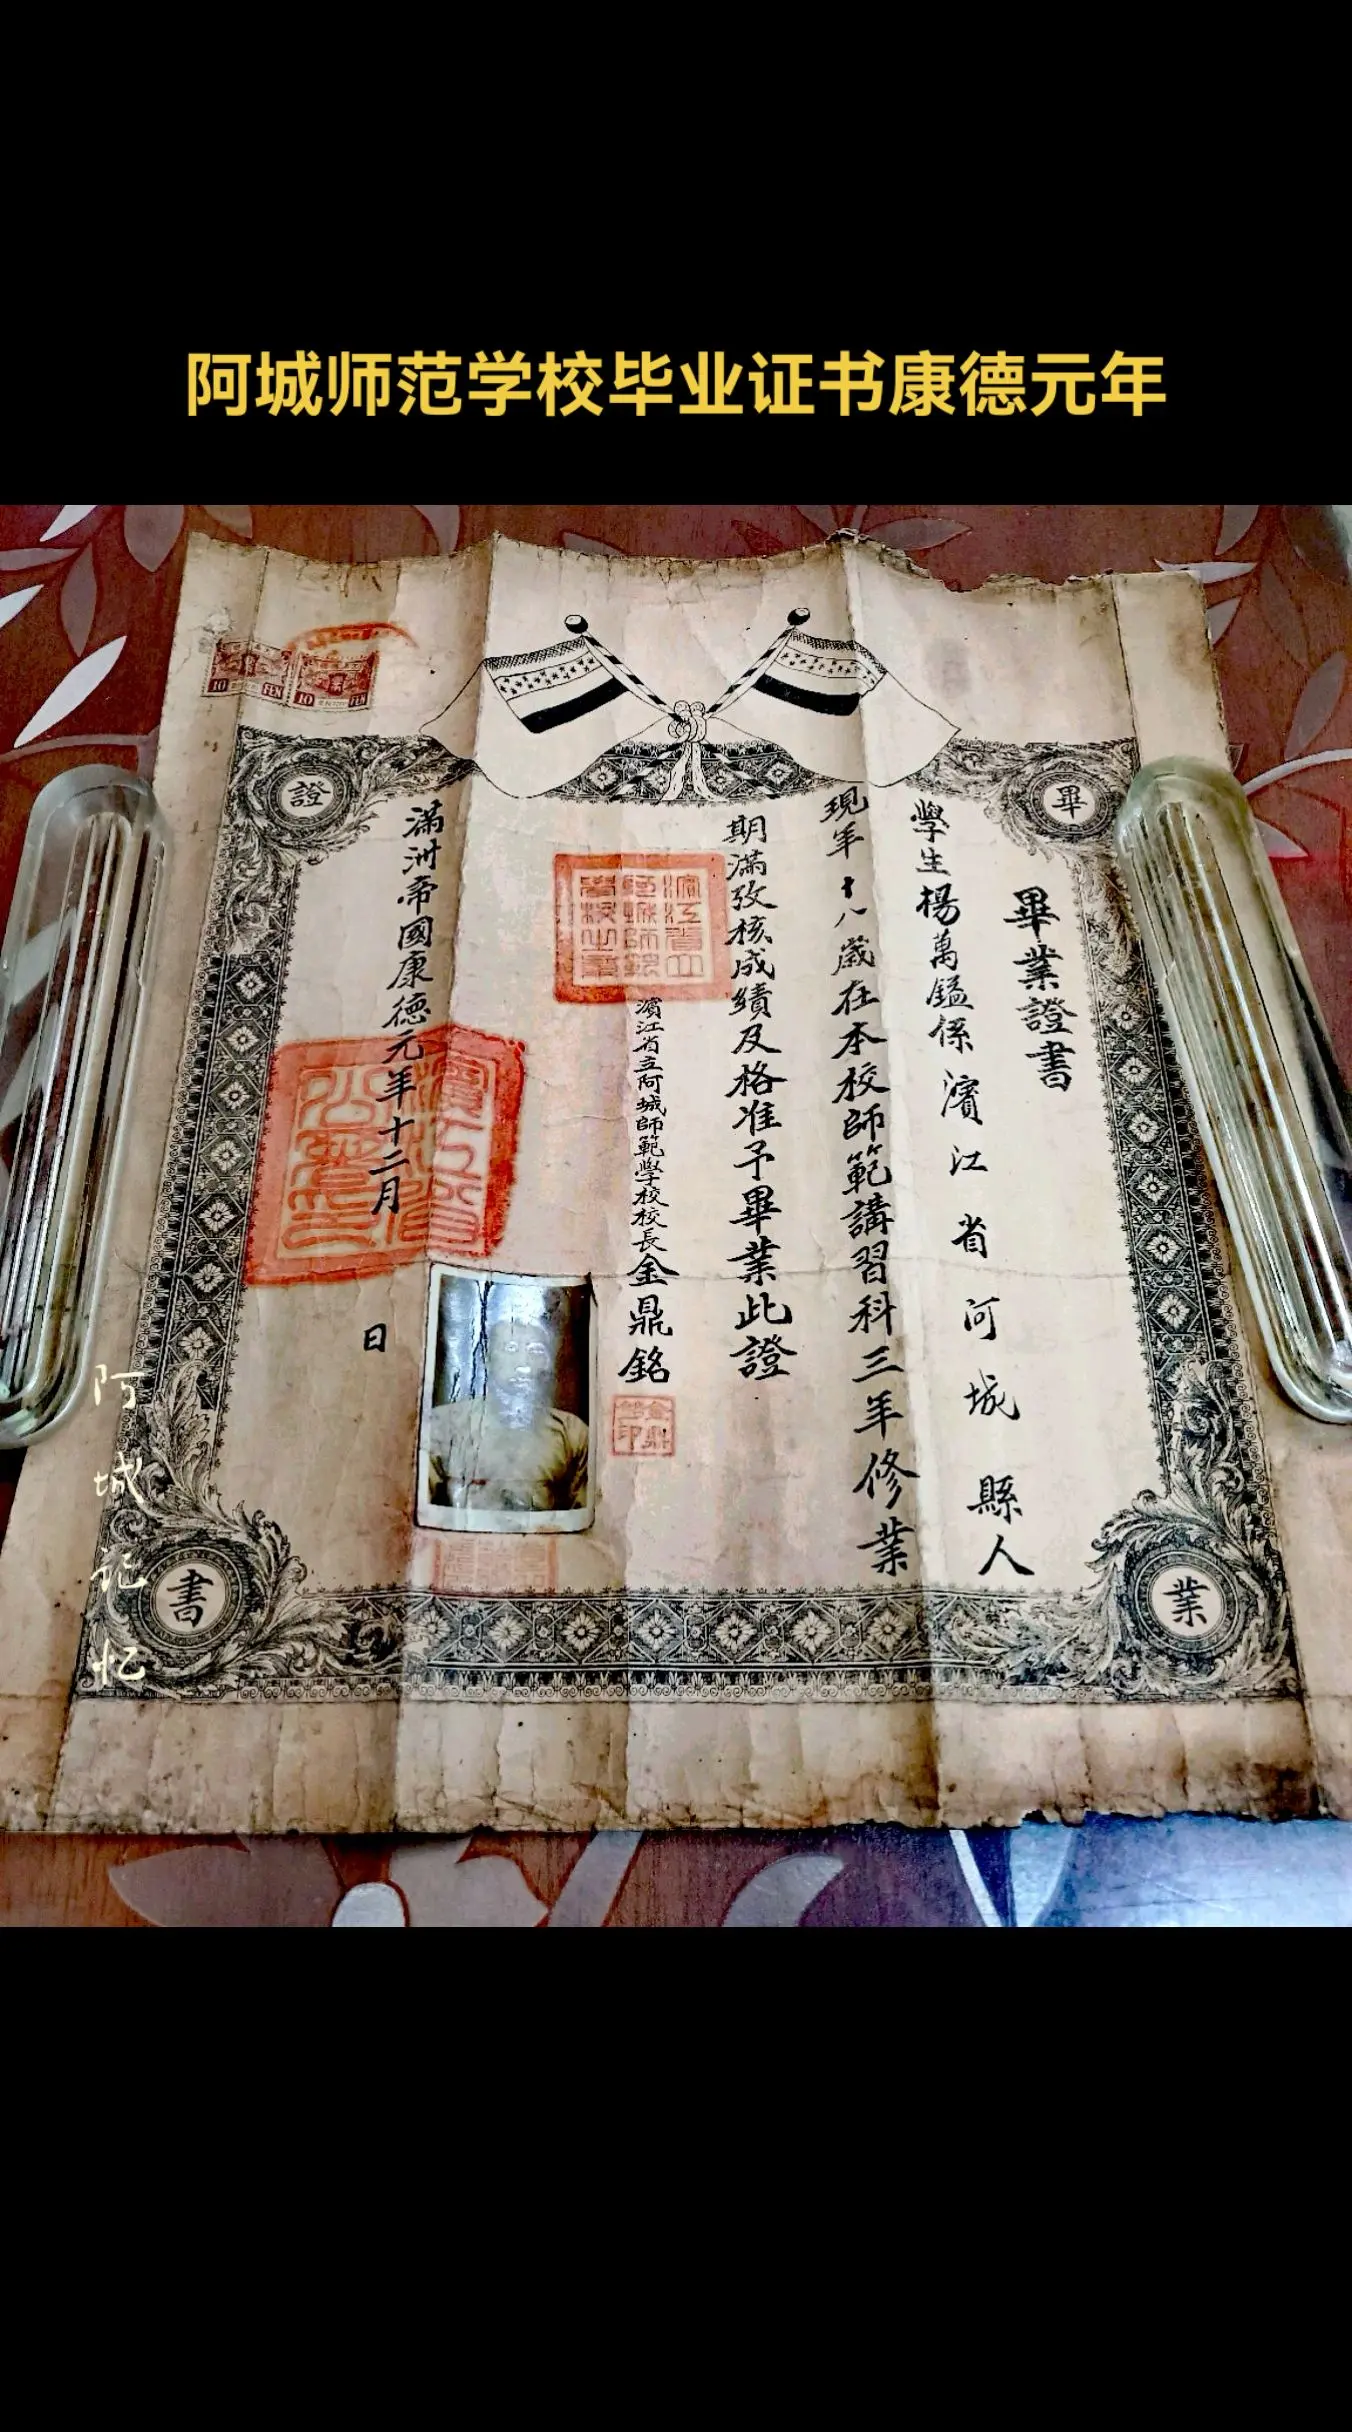 阿城师范学校毕业证书康德元年
畢
業
證
書
畢業證書
學生楊萬鎰係濱江省阿城縣人
現年十八歲在本校師範講習科三年修業
期滿攷核成績及格准予畢業此證
濱江省立阿城師範學校校長金鼎銘
金鼎銘印
濱江省立阿城師範學校之章
滿洲帝國康德元年十二月
日
濱江省公署印
10 FEN
10 FEN
阿城记忆